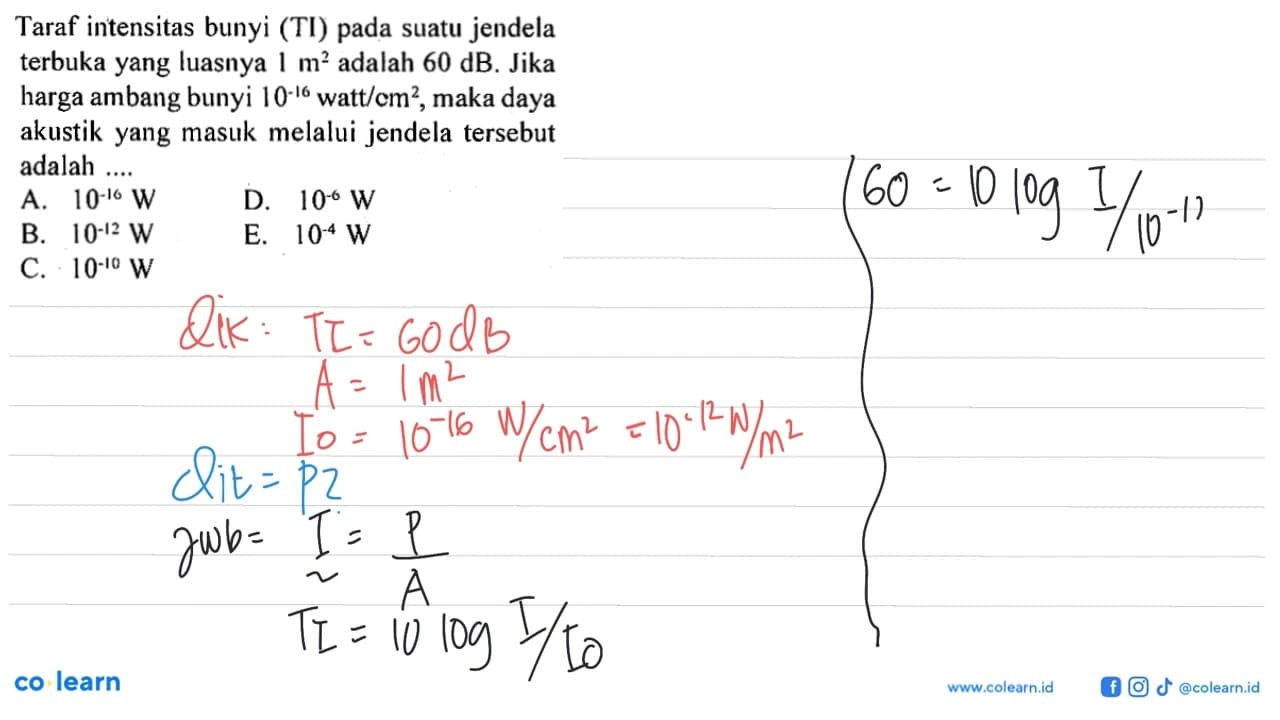 Taraf intensitas bunyi (TI) pada suatu jendela
terbuka yang luasnya 1 m² adalah 60 dB. Jika
harga ambang bunyi 10⁻¹⁶ watt/cm², maka daya
akustik yang masuk melalui jendela tersebut
adalah ....
A. 10⁻¹⁶ W D. 10⁻⁶ W
B. 10⁻¹² W E. 10⁻⁴ W
C. 10⁻¹⁰ W
Dik: TI = 60 dB
A = 1 m²
Io = 10⁻¹⁶ W/cm² = 10⁻¹² W/m²
dit = P?
jwb = I = P/A
TI = 10 log I/Io
60 = 10 log I/10⁻¹
co learn
www.colearn.id
@colearn.id